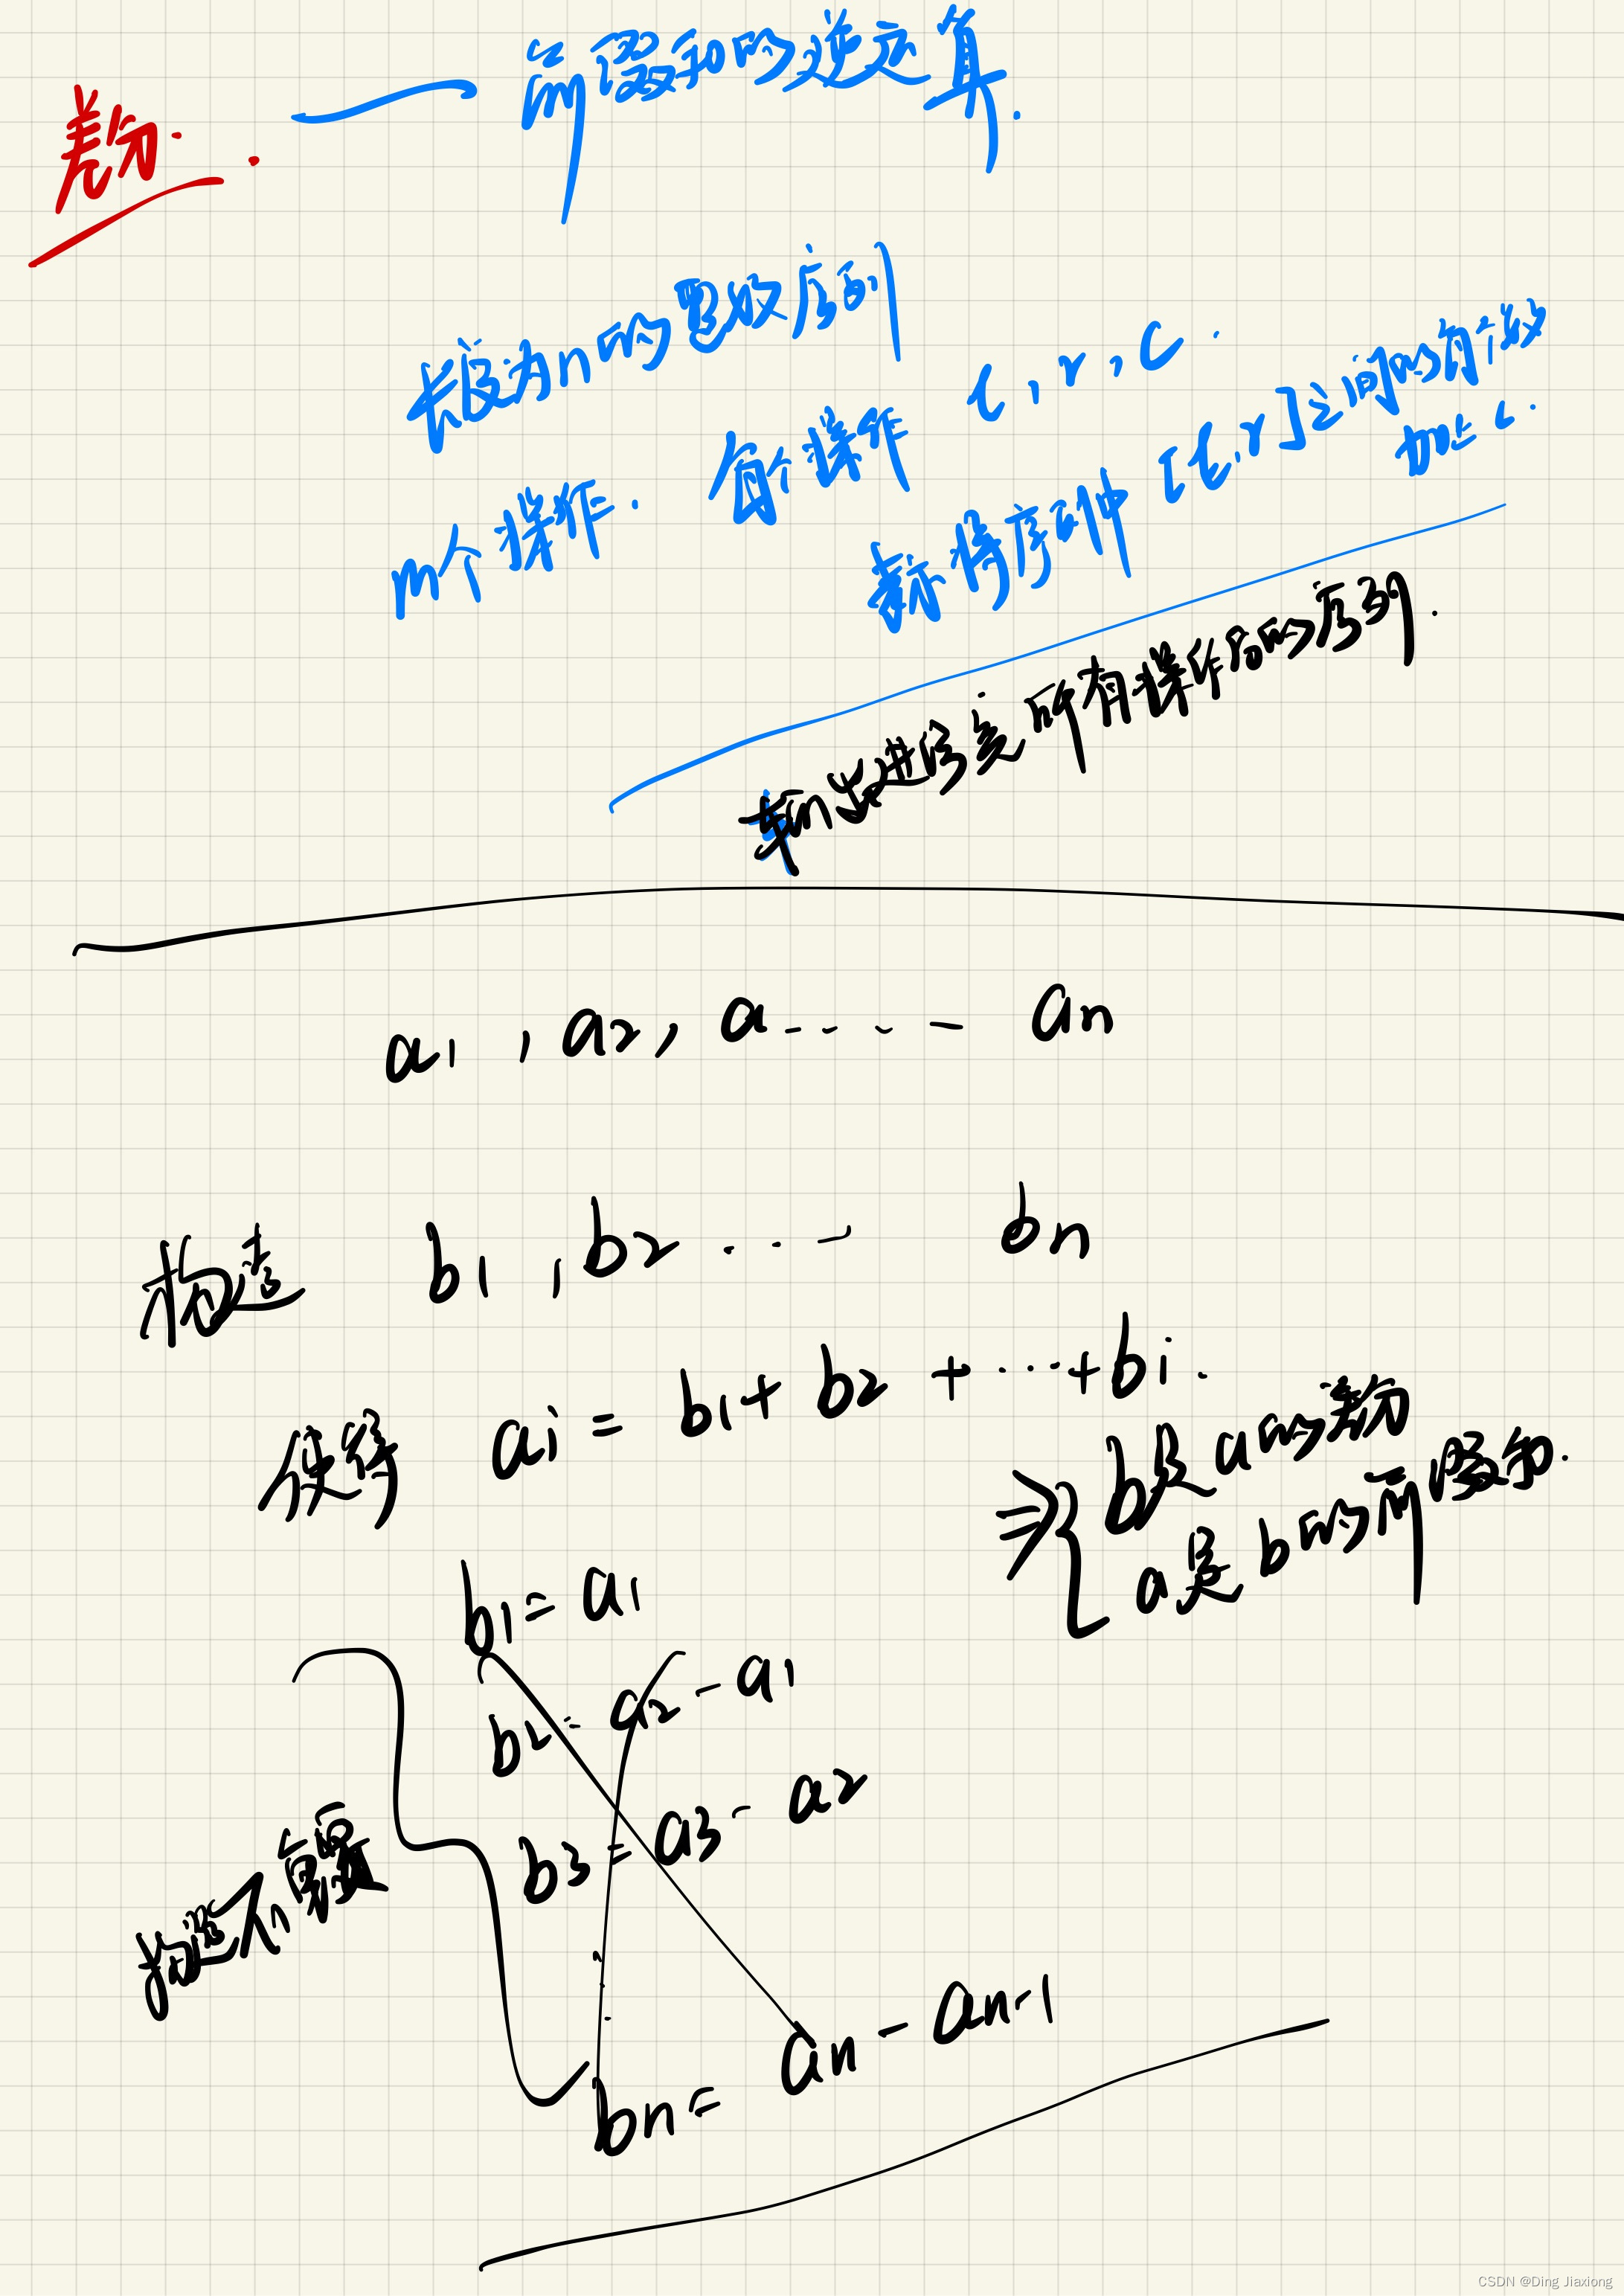 差分.
前缀和的逆运算.
长度为n的整数序列
m个操作. 每个操作 l, r, c.
表示将序列中[l, r]之间的每个数
加上c.
输出进行完所有操作后的序列.
a1, a2, a ...... an
构造 b1, b2 ..... bn
使得 ai = b1 + b2 + ... + bi.
⇒ { b是a的差分
a是b的前缀和.
b1 = a1
b2 = a2 - a1
b3 = a3 - a2
构造不重要
...
bn = an - an-1
CSDN @Ding Jiaxiong